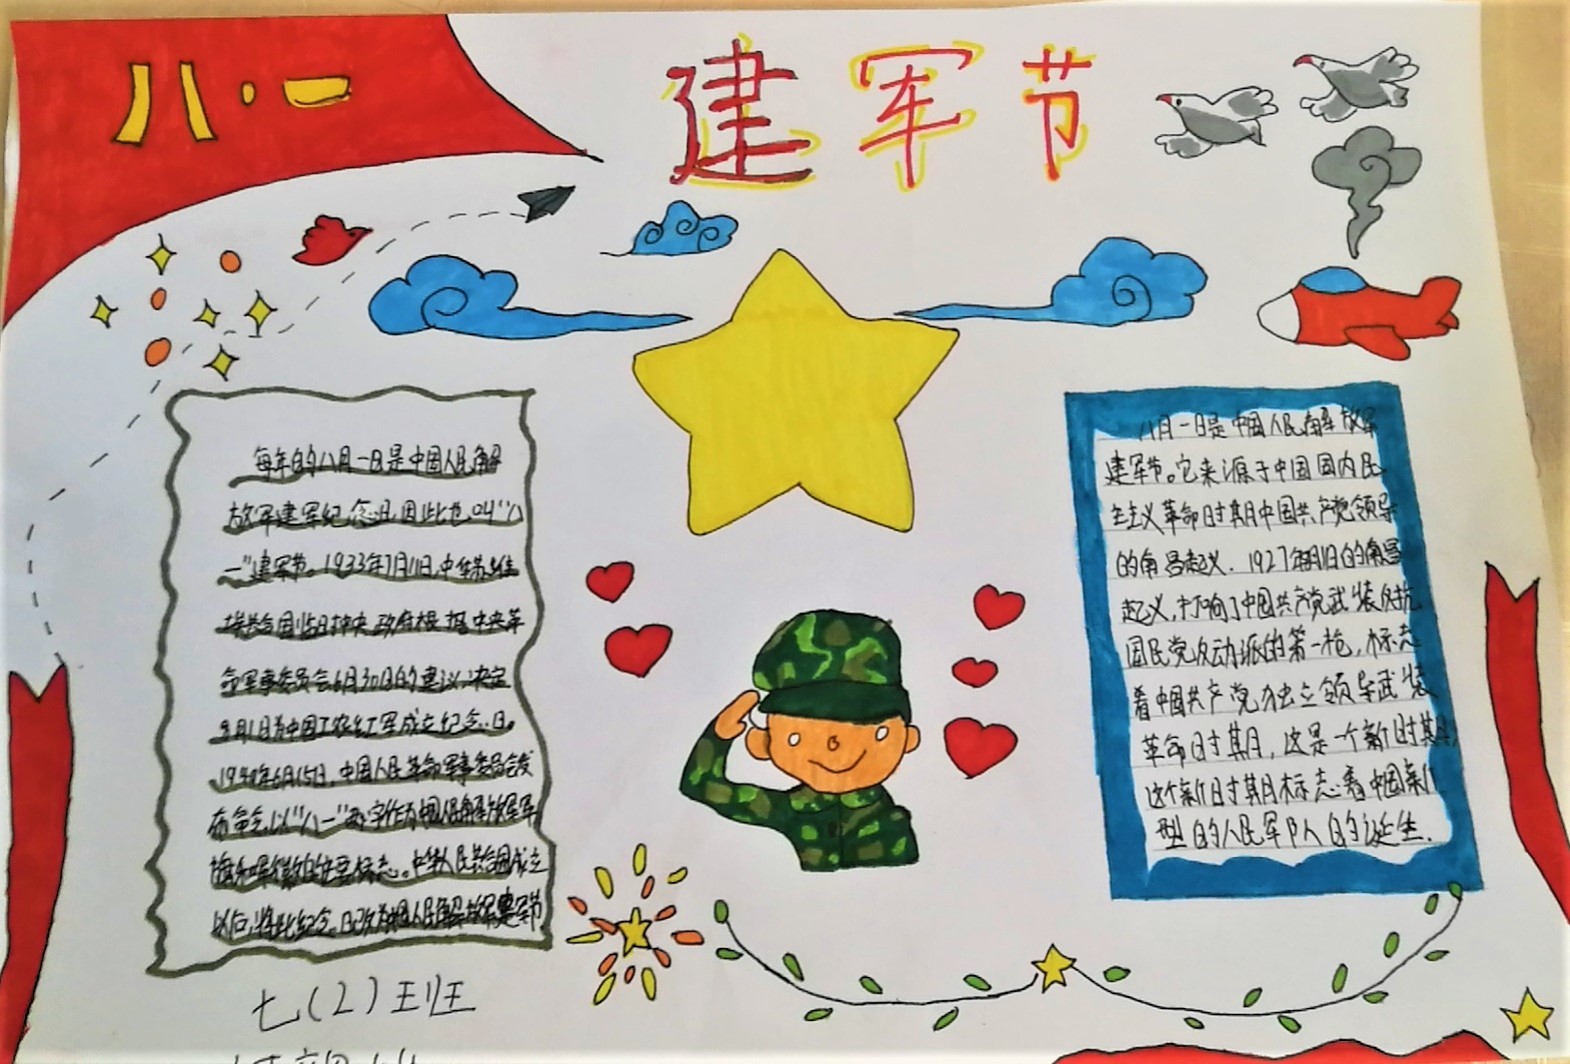 八·一
建军节
每年的八月一日是中国人民解
放军建军纪念日,因此也叫“八
一”建军节。1933年7月11日,中华苏维
埃共和国临时中央政府根据中央革
命军事委员会6月30日的建议,决定
8月1日为中国工农红军成立纪念日。
1949年6月15日,中国人民革命军事委员会发
布命令,以“八一”两字作为中国人民解放军军
旗和军徽的主要标志。中华人民共和国成立
以后,将此纪念日改为中国人民解放军建军节
八月一日是中国人民解放军
建军节。它来源于中国国内民
主主义革命时期中国共产党领导
的南昌起义.1927年8月1日的南昌
起义,打响了中国共产党武装反抗
国民党反动派的第一枪,标志
着中国共产党独立领导武装
革命时期,这是一个新时期,
这个新时期标志着中国新
型的人民军队的诞生.
七(2)班